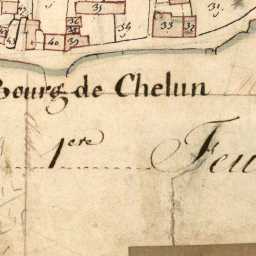 31
31
36
36
33
32
42
43
41
40
39
Bourg de Chelun
1ere Feu